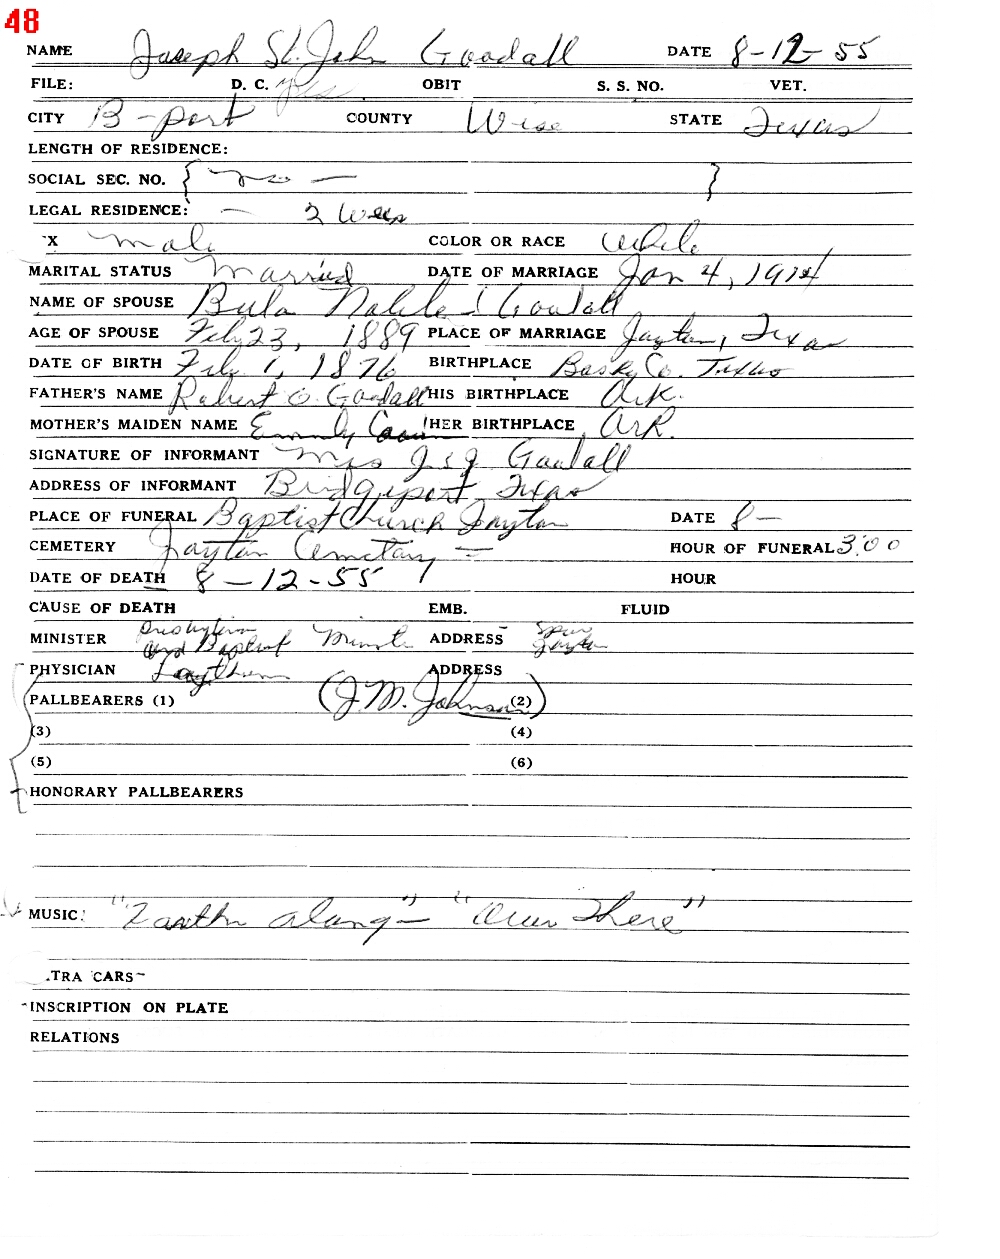 48
NAME Joseph St. John Goodall DATE 8-12-55
FILE: D. C. yes OBIT S. S. NO. VET.
CITY B-port COUNTY Wise STATE Texas
LENGTH OF RESIDENCE:
SOCIAL SEC. NO. { no — }
LEGAL RESIDENCE: — 2 Wees
X male COLOR OR RACE White
MARITAL STATUS Married DATE OF MARRIAGE Jan 4, 1914
NAME OF SPOUSE Bula Goodall
AGE OF SPOUSE Feb 23, 1889 PLACE OF MARRIAGE Jayton, Texas
DATE OF BIRTH Feb 1, 1876 BIRTHPLACE Co. Texas
FATHER'S NAME Robert O. Goodall HIS BIRTHPLACE Ark.
MOTHER'S MAIDEN NAME HER BIRTHPLACE Ark.
SIGNATURE OF INFORMANT Mrs J. S. J. Goodall
ADDRESS OF INFORMANT Bridgeport, Texas
PLACE OF FUNERAL Baptist Church Jayton DATE 8-
CEMETERY Jayton Cemetary — HOUR OF FUNERAL 3:00
DATE OF DEATH 8-12-55 HOUR
CAUSE OF DEATH EMB. FLUID
MINISTER and Baptist ADDRESS Spur Jayton
PHYSICIAN ADDRESS
PALLBEARERS (1) (J. M. Johnson) (2)
(3) (4)
(5) (6)
HONORARY PALLBEARERS
MUSIC: "Farther along" — "Over There"
.TRA CARS
INSCRIPTION ON PLATE
RELATIONS